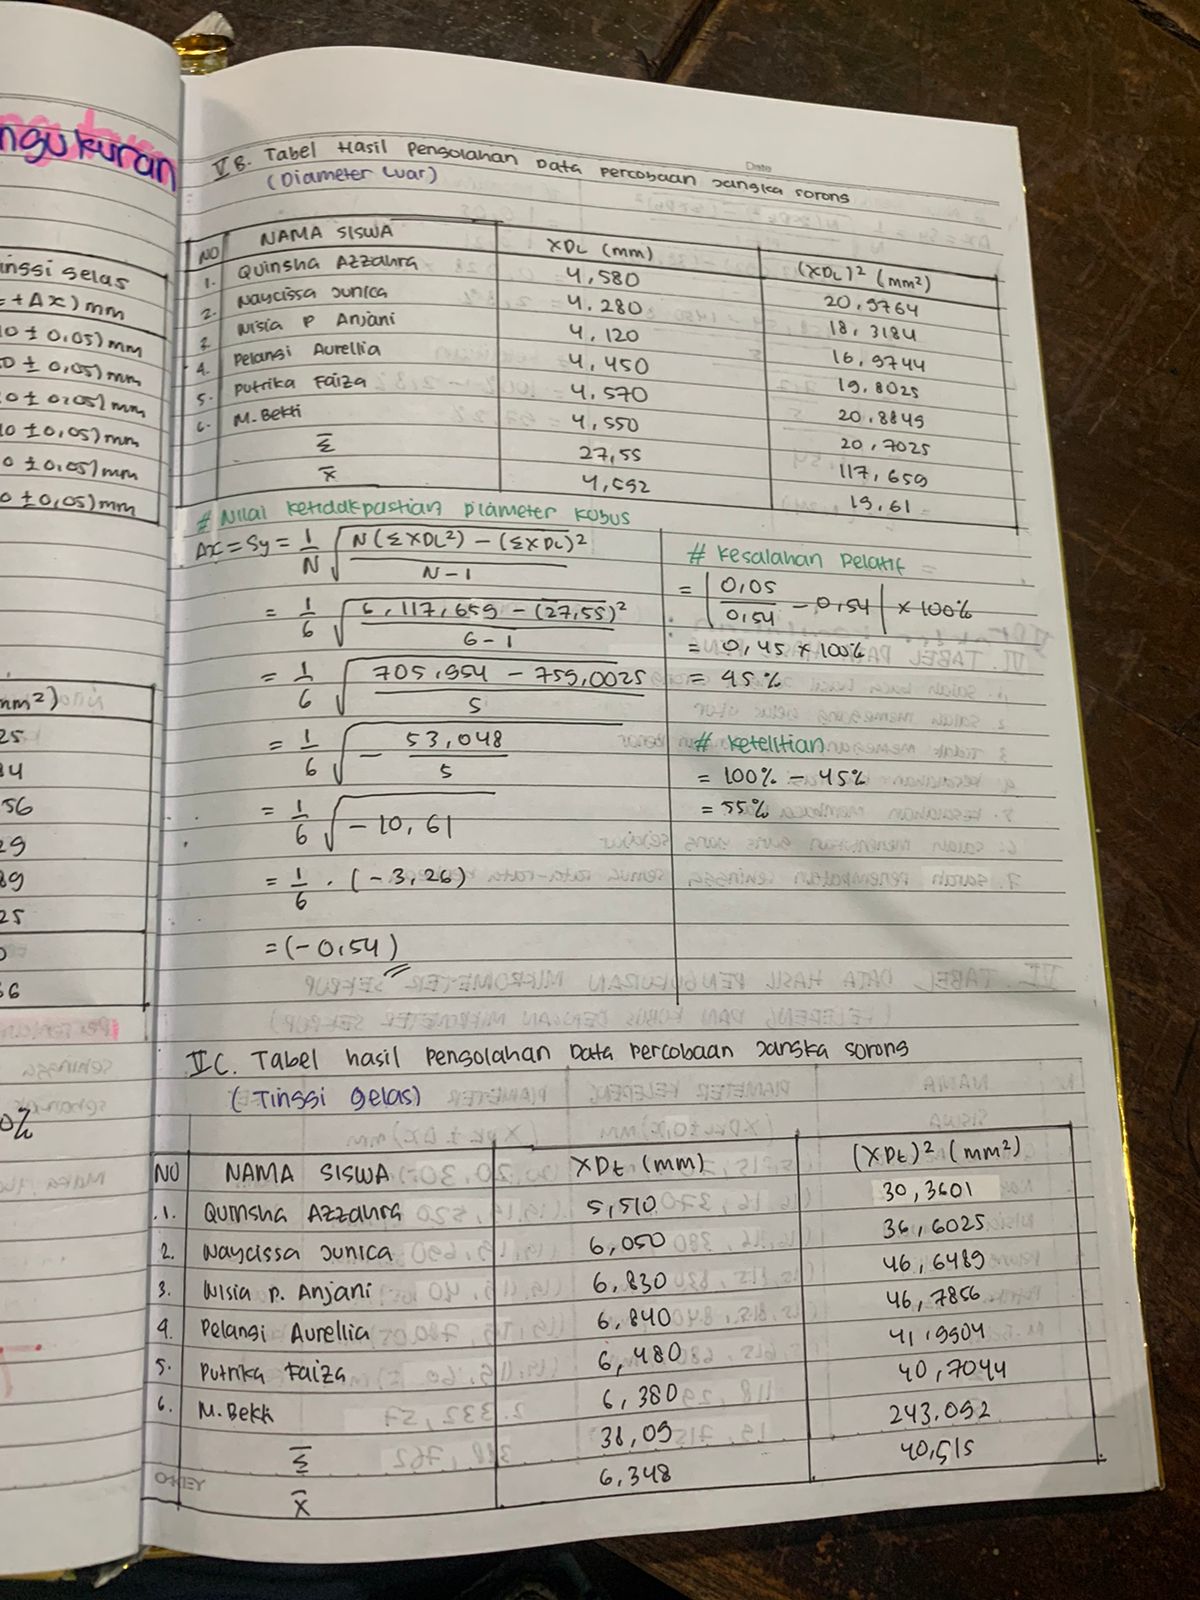 ngukuran
inggi gelas
= + Δx) mm
10 ± 0,05) mm
0 ± 0,05) mm
0 ± 0,05) mm
10 ± 0,05) mm
0 ± 0,05) mm
0 ± 0,05) mm
mm²)
25
84
56
29
89
25
0
56
0%
Date
V B. Tabel Hasil Pengolahan Data percobaan Jangka sorong
(Diameter Luar)
NO NAMA SISWA XDL (mm) (XDL)² (mm²)
1. Quinsha Azzahra 4,580 20,9764
2. Naycissa Junica 4,280 18,3184
3. Nisia P Anjani 4,120 16,9744
4. Pelangi Aurellia 4,450 19,8025
5. Putrika Faiza 4,570 20,8849
6. M. Bekti 4,550 20,7025
Σ 27,55 117,659
x̄ 4,592 19,61
# Nilai ketidakpastian Diameter kubus
Δx = Sy = 1/N √ N(ΣXDL²) − (ΣXDL)² / N − 1
= 1/6 √ 6,117,659 − (27,55)² / 6 − 1
= 1/6 √ 705,954 − 759,0025 / 5
= 1/6 √ − 53,048 / 5
= 1/6 √ −10,61
= 1/6 . (−3,26)
= (−0,54)
# Kesalahan Relatif
= | 0,05 / 0,54 − 0,54 | × 100%
= 0,45 × 100%
= 45%
# Ketelitian
= 100% − 45%
= 55%
V C. Tabel hasil Pengolahan Data Percobaan Jangka sorong
(Tinggi gelas)
NO NAMA SISWA XDt (mm) (XDt)² (mm²)
1. Quinsha Azzahra 5,510 30,3601
2. Naycissa Junica 6,050 36,6025
3. Nisia P. Anjani 6,830 46,6489
4. Pelangi Aurellia 6,840 46,7856
5. Putrika Faiza 6,480 41,9904
6. M. Bekti 6,380 40,7044
Σ 38,09 243,092
x̄ 6,348 40,515